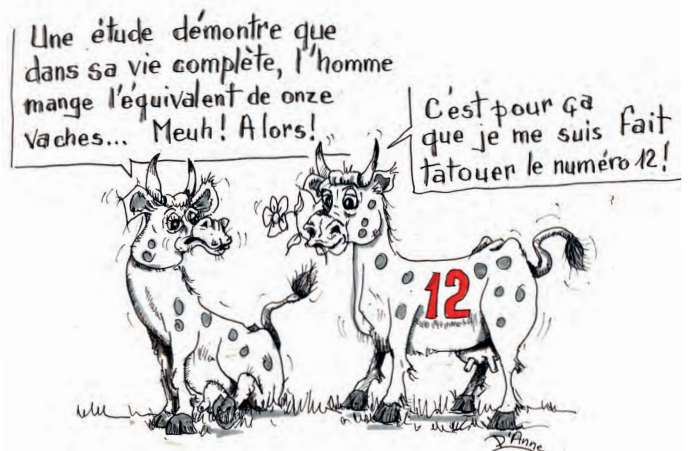 Une étude démontre que
dans sa vie complète, l'homme
mange l'équivalent de onze
vaches... Meuh! Alors!
C'est pour ça
que je me suis fait
tatouer le numéro 12!
12
D'Anne